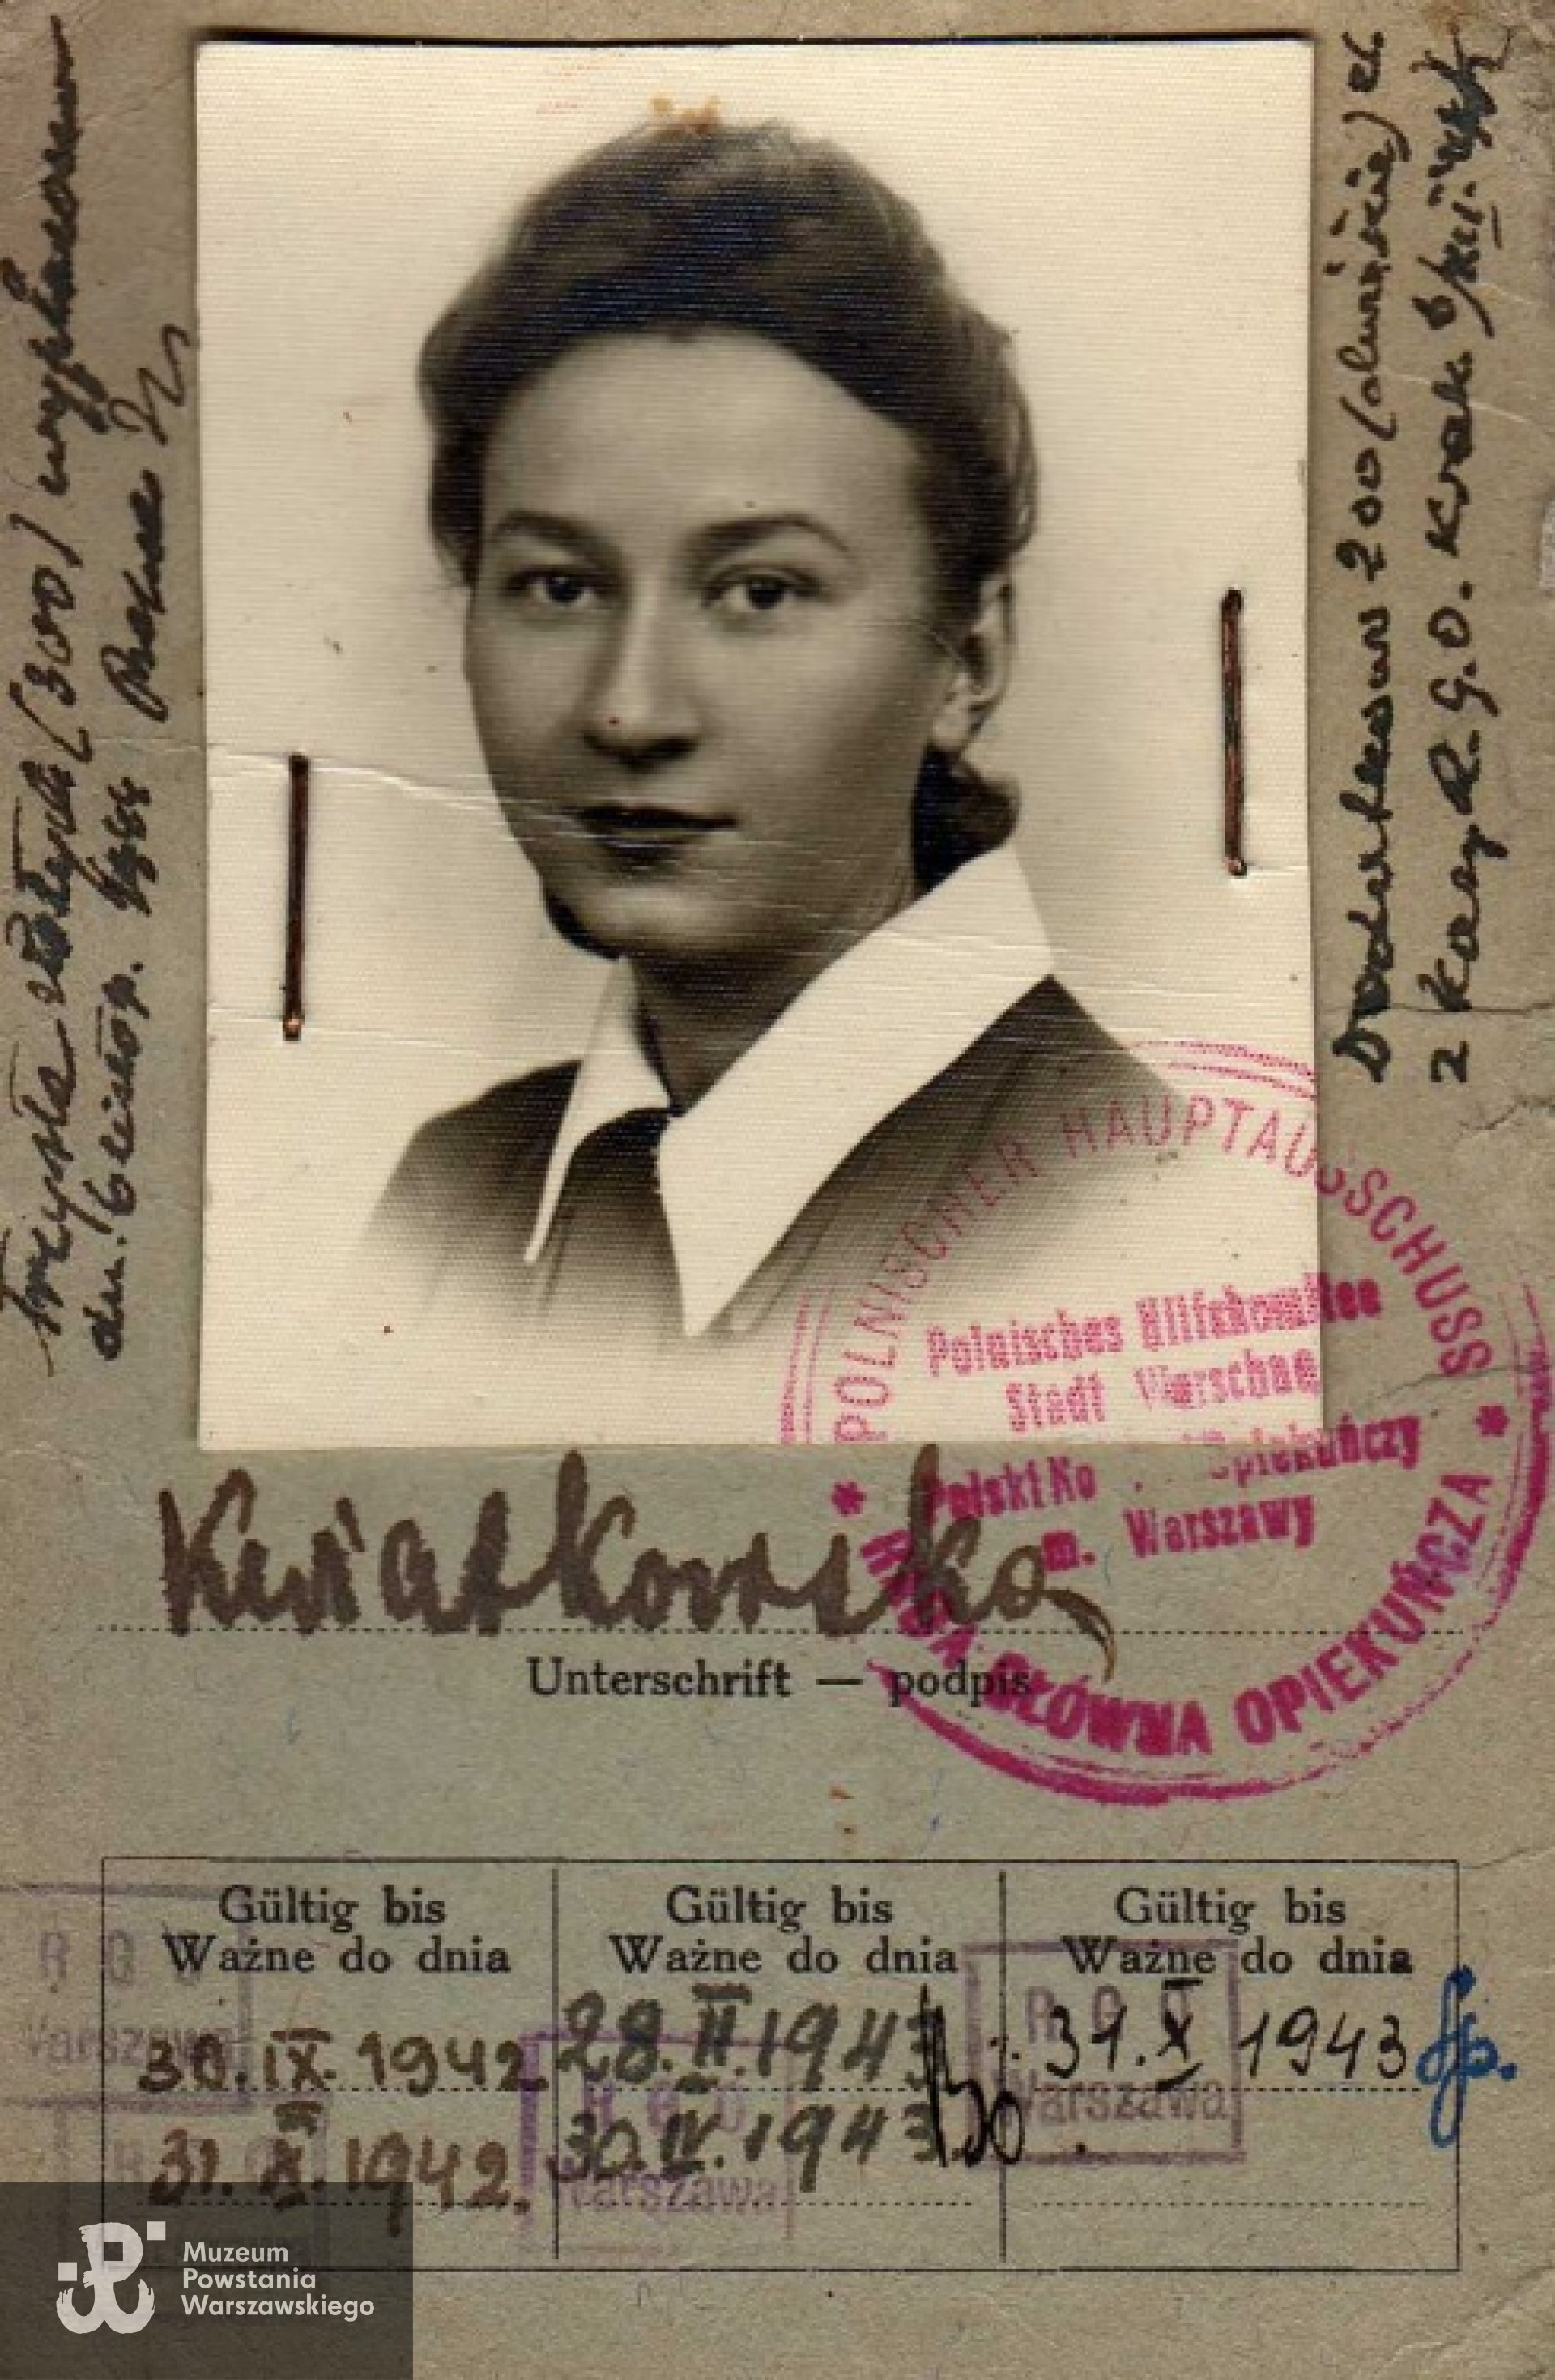 trzysta złotych (300) wypłacono
dn. 6 listop. 1944
Dodatkowo 200 (dwieście) zł.
z Kasy R.G.O. Krak.
POLNISCHER HAUPTAUSSCHUSS
Polnisches Hilfskomitee
Stadt Warschau
Polski Ko Opiekuńczy
m. Warszawy
* RADA GŁÓWNA OPIEKUŃCZA *
Kwiatkowska
Unterschrift — podpis
Gültig bis
Ważne do dnia
30.IX.1942
31.X.1942.
Gültig bis
Ważne do dnia
28.II.1943
30.IV.1943
Gültig bis
Ważne do dnia
31.X 1943
R G O
Warszawa
R G O
R G O
Warszawa
R G O
Warszawa
Muzeum
Powstania
Warszawskiego